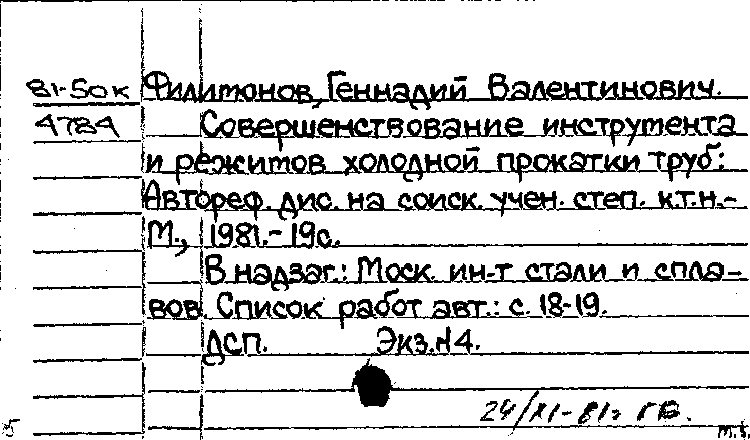 81-50к Филимонов, Геннадий Валентинович.
4784 Совершенствование инструмента
и режимов холодной прокатки труб:
Автореф. дис. на соиск. учен. степ. к.т.н.-
М., 1981.-19с.
В надзаг.: Моск. ин-т стали и спла-
вов. Список работ авт.: с. 18-19.
ДСП. Экз.N4.
24/XI-81г. ГВ.